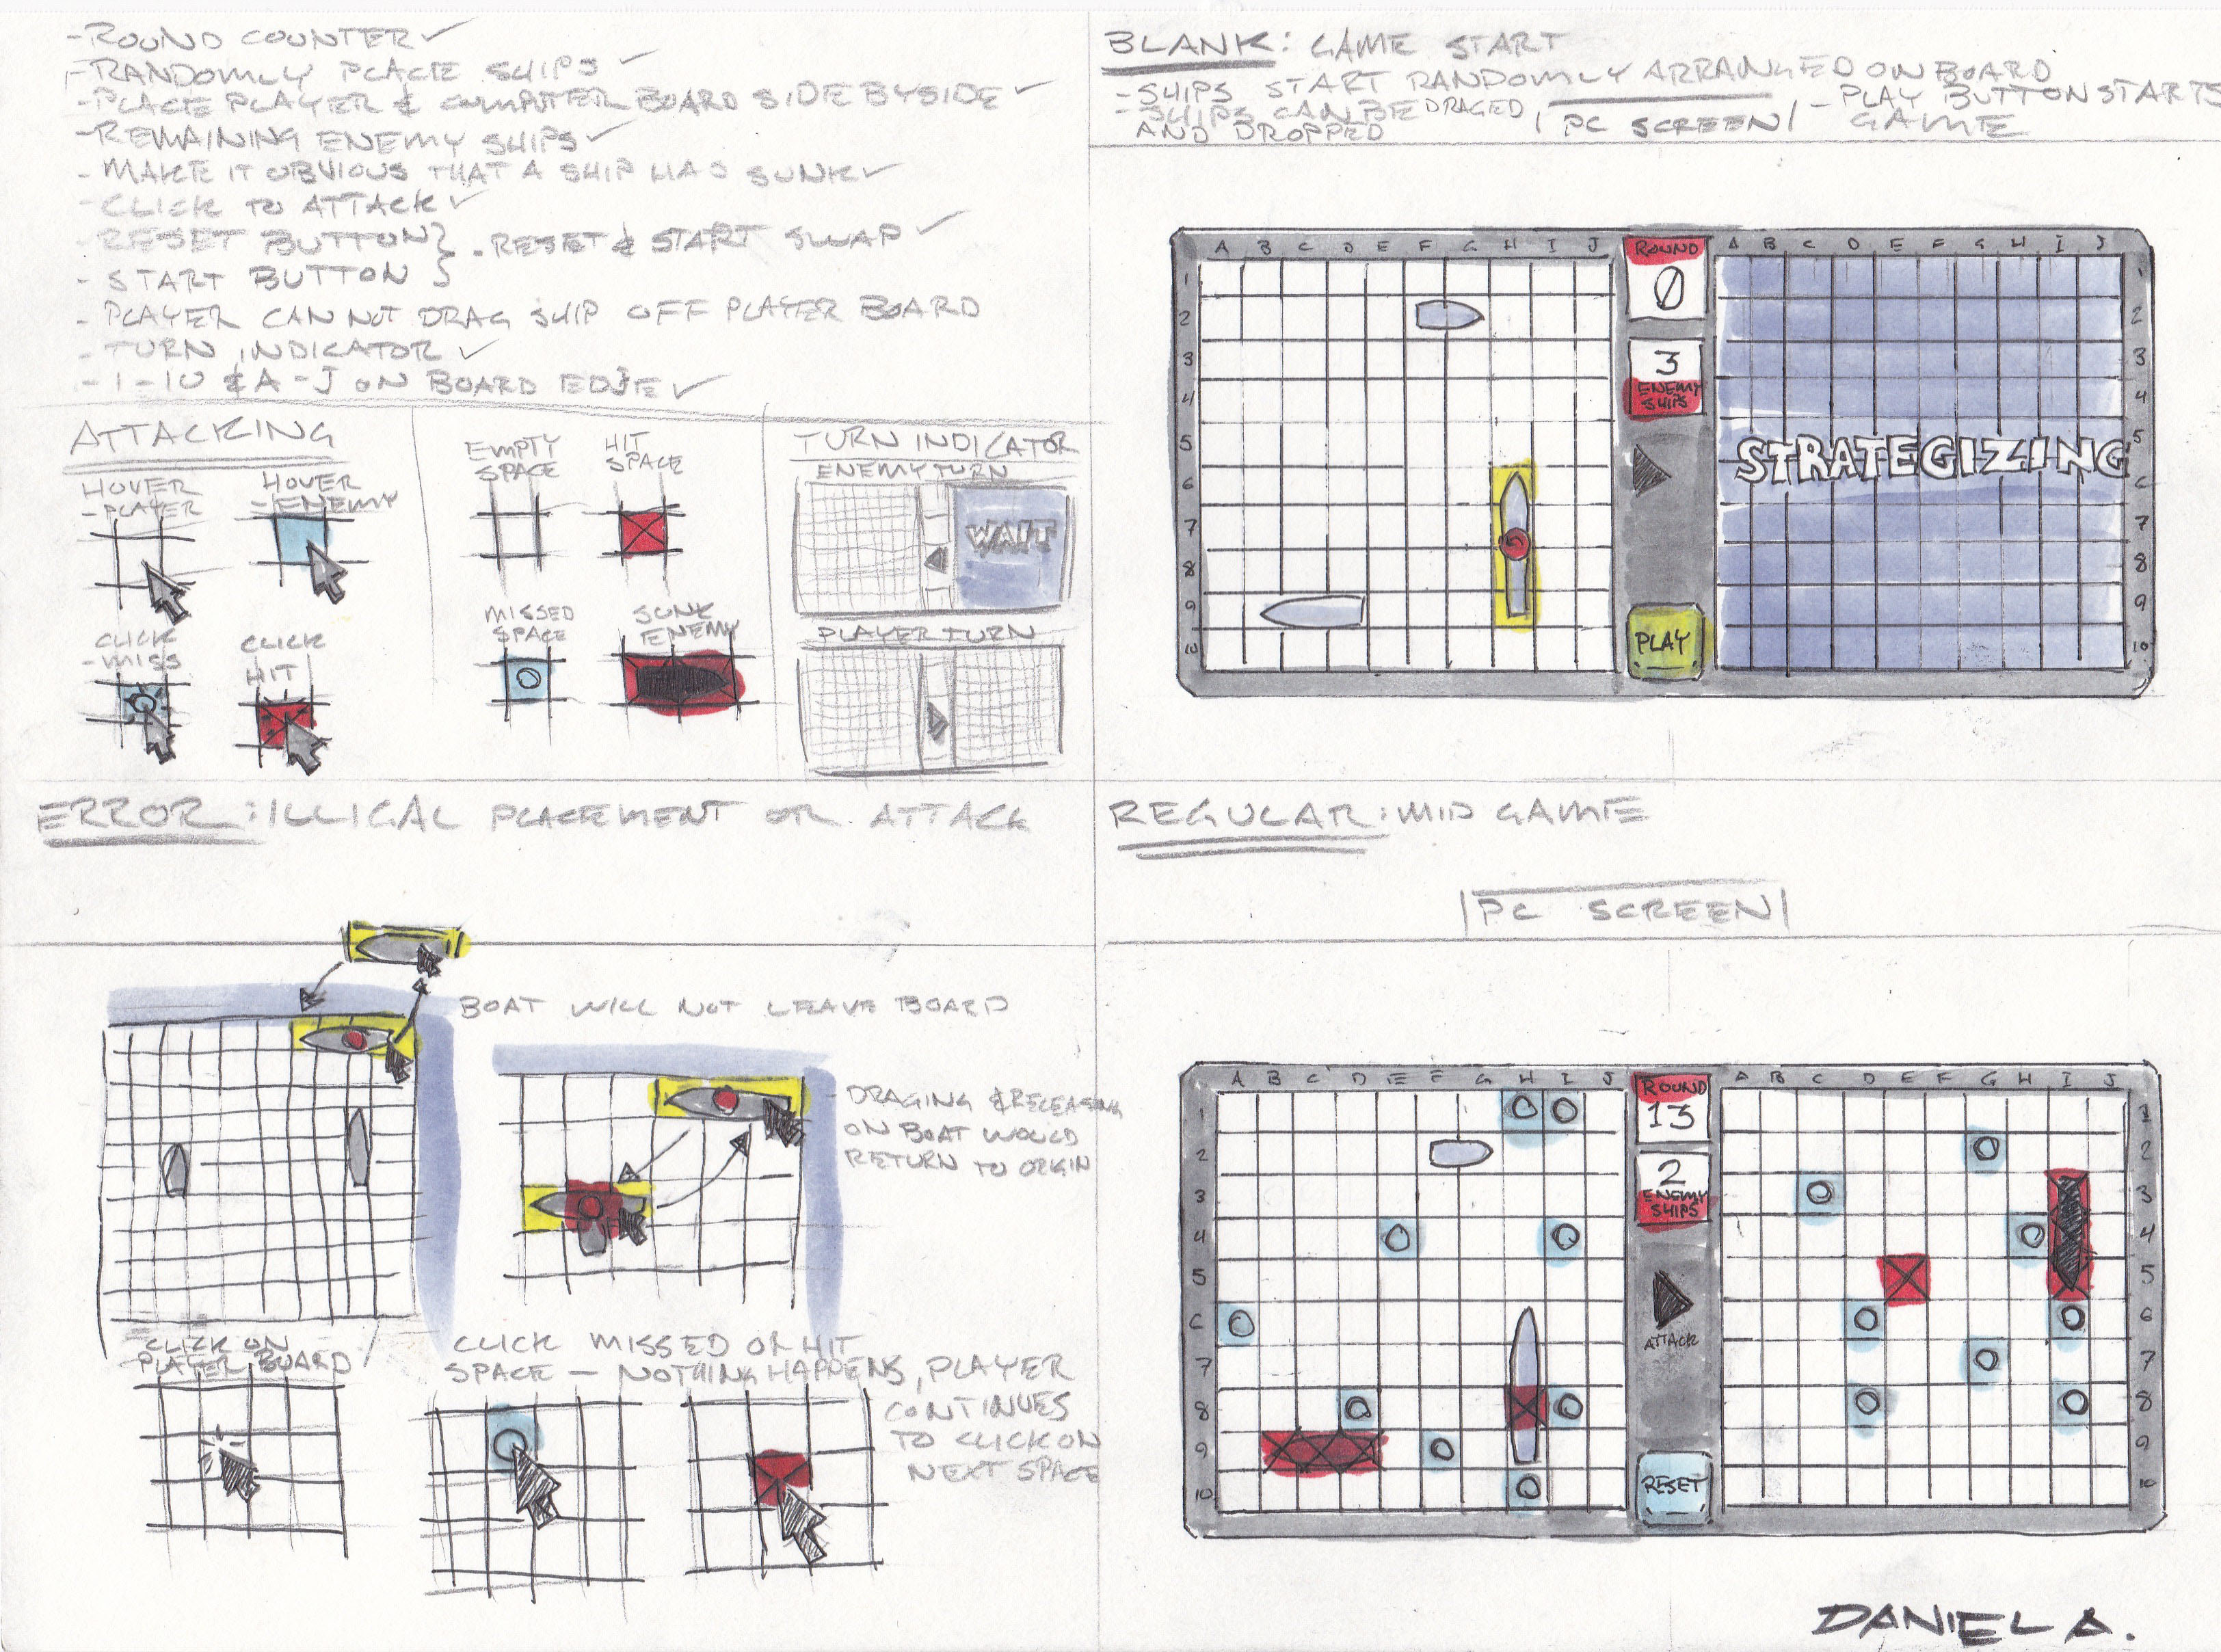 - ROUND COUNTER ✓
- RANDOMLY PLACE SHIPS ✓
- PLACE PLAYER & COMPUTER BOARD SIDE BY SIDE ✓
- REMAINING ENEMY SHIPS ✓
- MAKE IT OBVIOUS THAT A SHIP HAS SUNK ✓
- CLICK TO ATTACK ✓
- RESET BUTTON } . RESET & START SWAP ✓
- START BUTTON }
- PLAYER CAN NOT DRAG SHIP OFF PLAYER BOARD
- TURN INDICATOR ✓
- 1-10 & A-J ON BOARD EDJE ✓
ATTACKING
HOVER
- PLAYER
HOVER
- ENEMY
CLICK
- MISS
CLICK
HIT
EMPTY
SPACE
HIT
SPACE
MISSED
SPACE
SUNK
ENEMY
TURN INDICATOR
ENEMY TURN
WAIT
PLAYER TURN
BLANK: GAME START
- SHIPS START RANDOMLY ARRANGED ON BOARD
- SHIPS CAN BE DRAGED
AND DROPPED
PC SCREEN
- PLAY BUTTON STARTS
GAME
A B C D E F G H I J
1
2
3
4
5
6
7
8
9
10
ROUND
0
3
ENEMY
SHIPS
PLAY
A B C D E F G H I J
STRATEGIZING
1
2
3
4
5
6
7
8
9
10
ERROR: ILLIGAL PLACEMENT OR ATTACK
BOAT WILL NOT LEAVE BOARD
DRAGING & RELEASING
ON BOAT WOULD
RETURN TO ORIGIN
CLICK ON
PLAYER BOARD
CLICK MISSED OR HIT
SPACE — NOTHING HAPPENS, PLAYER
CONTINUES
TO CLICK ON
NEXT SPACE
REGULAR: MID GAME
PC SCREEN
A B C D E F G H I J
1
2
3
4
5
6
7
8
9
10
ROUND
13
2
ENEMY
SHIPS
ATTACK
RESET
A B C D E F G H I J
1
2
3
4
5
6
7
8
9
10
DANIEL A.